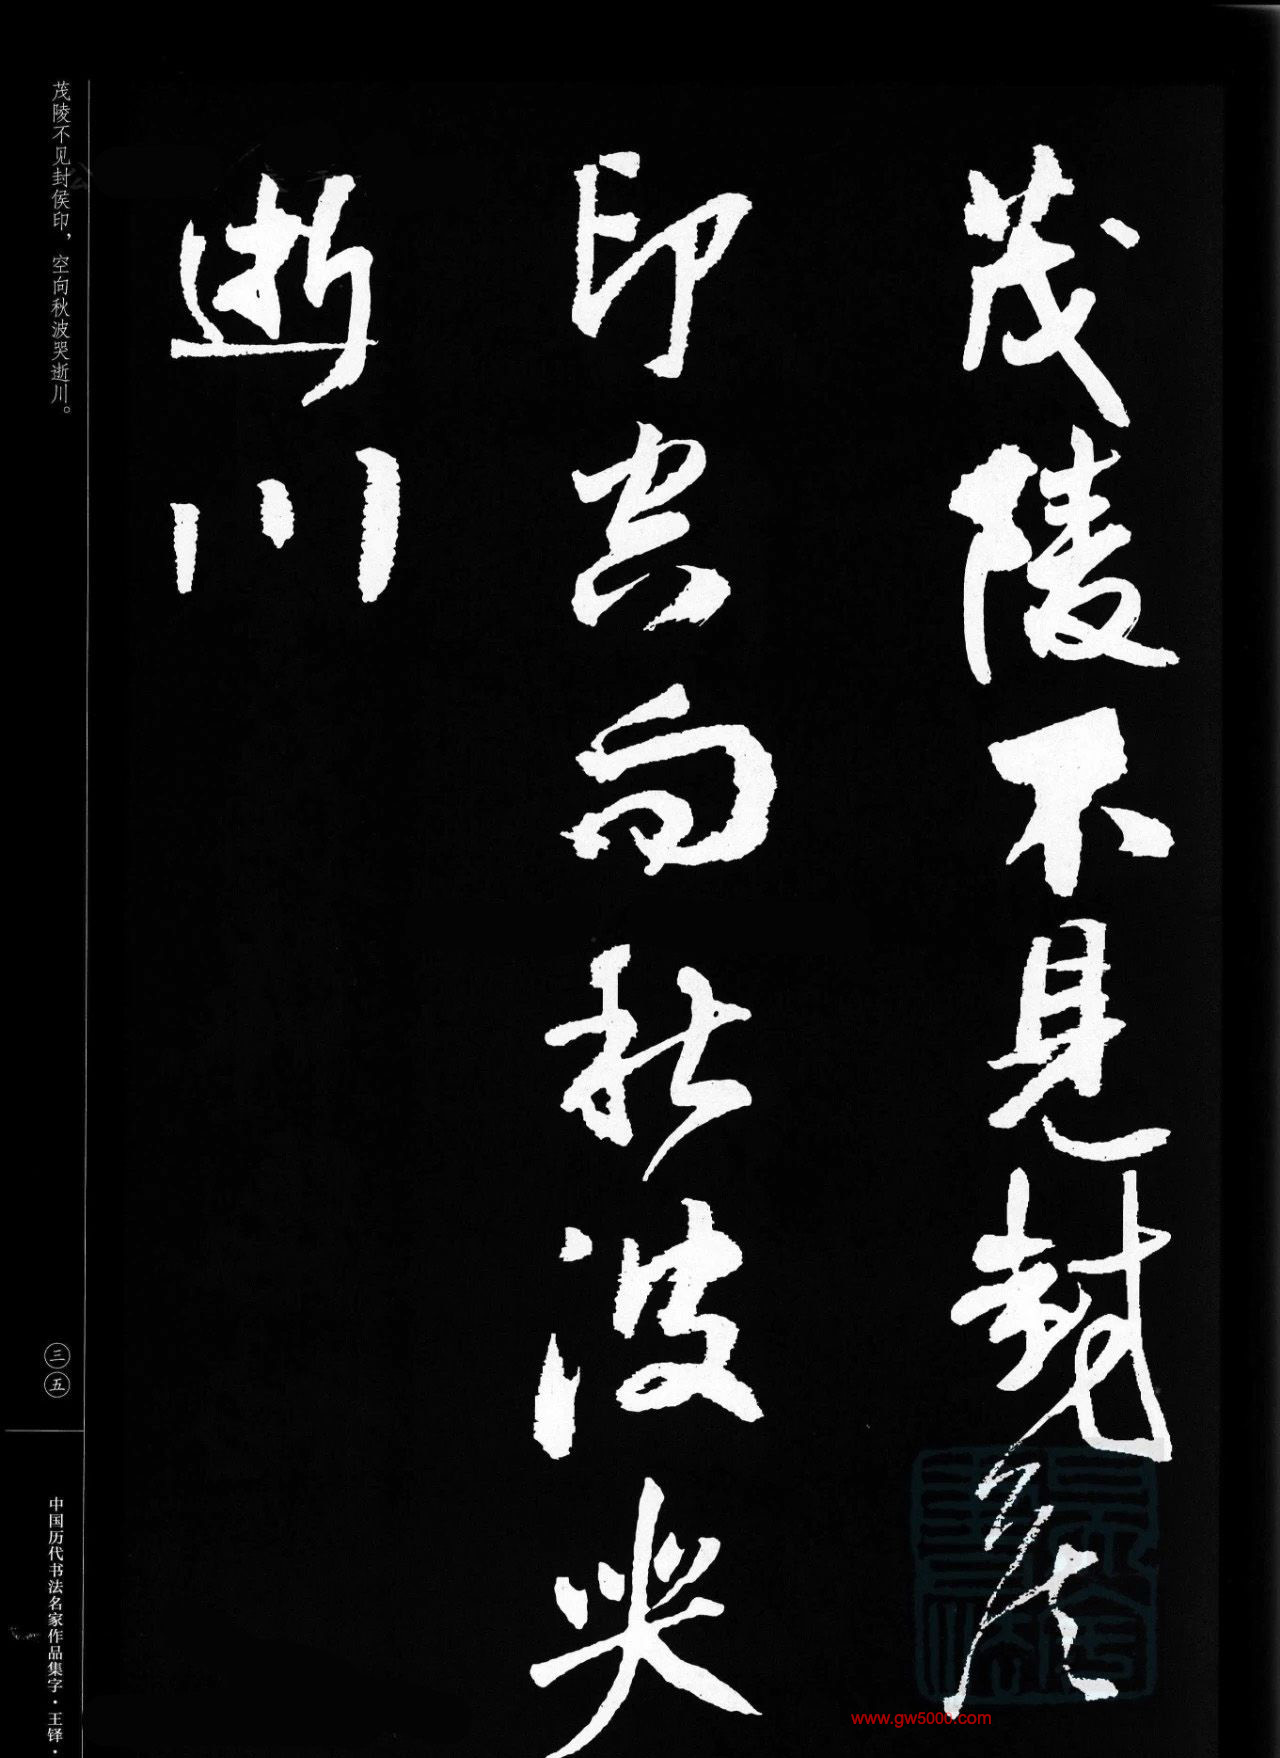 茂陵不見封侯
印空向秋波哭
逝川
茂陵不见封侯印，空向秋波哭逝川。
三五
中国历代书法名家作品集字·王铎·
www.gw5000.com